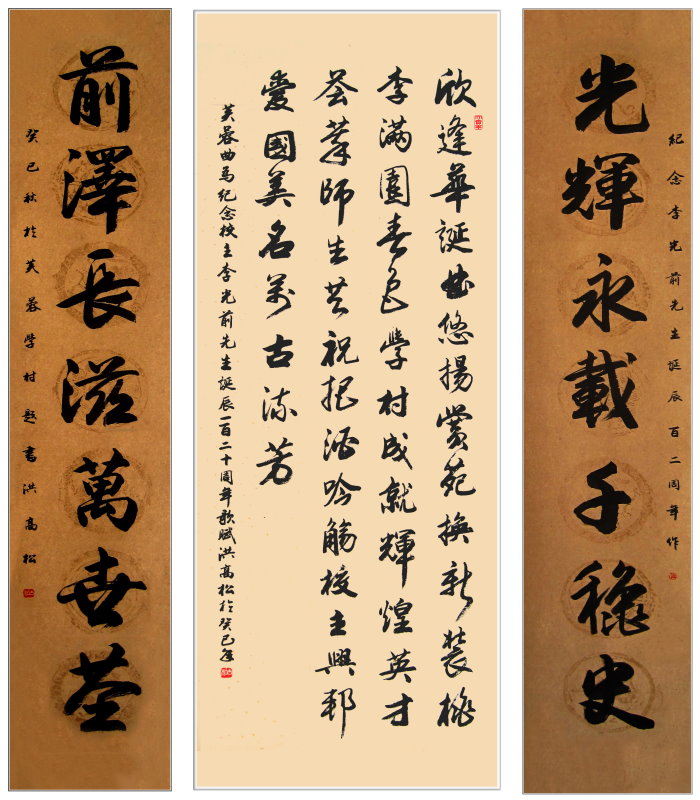 紀念李光前先生誕辰百二周年作
光輝永載千穐史
欣逢華誕曲悠揚黌苑換新裝桃
李滿園春色學村成就輝煌英才
荟萃師生共祝把酒吟觴校主興邦
愛國美名萬古流芳
芙蓉曲為紀念校主李光前先生誕辰一百二十周年歌賦洪高松於癸巳年
前澤長滋萬世荃
癸巳秋於芙蓉學村題書洪高松